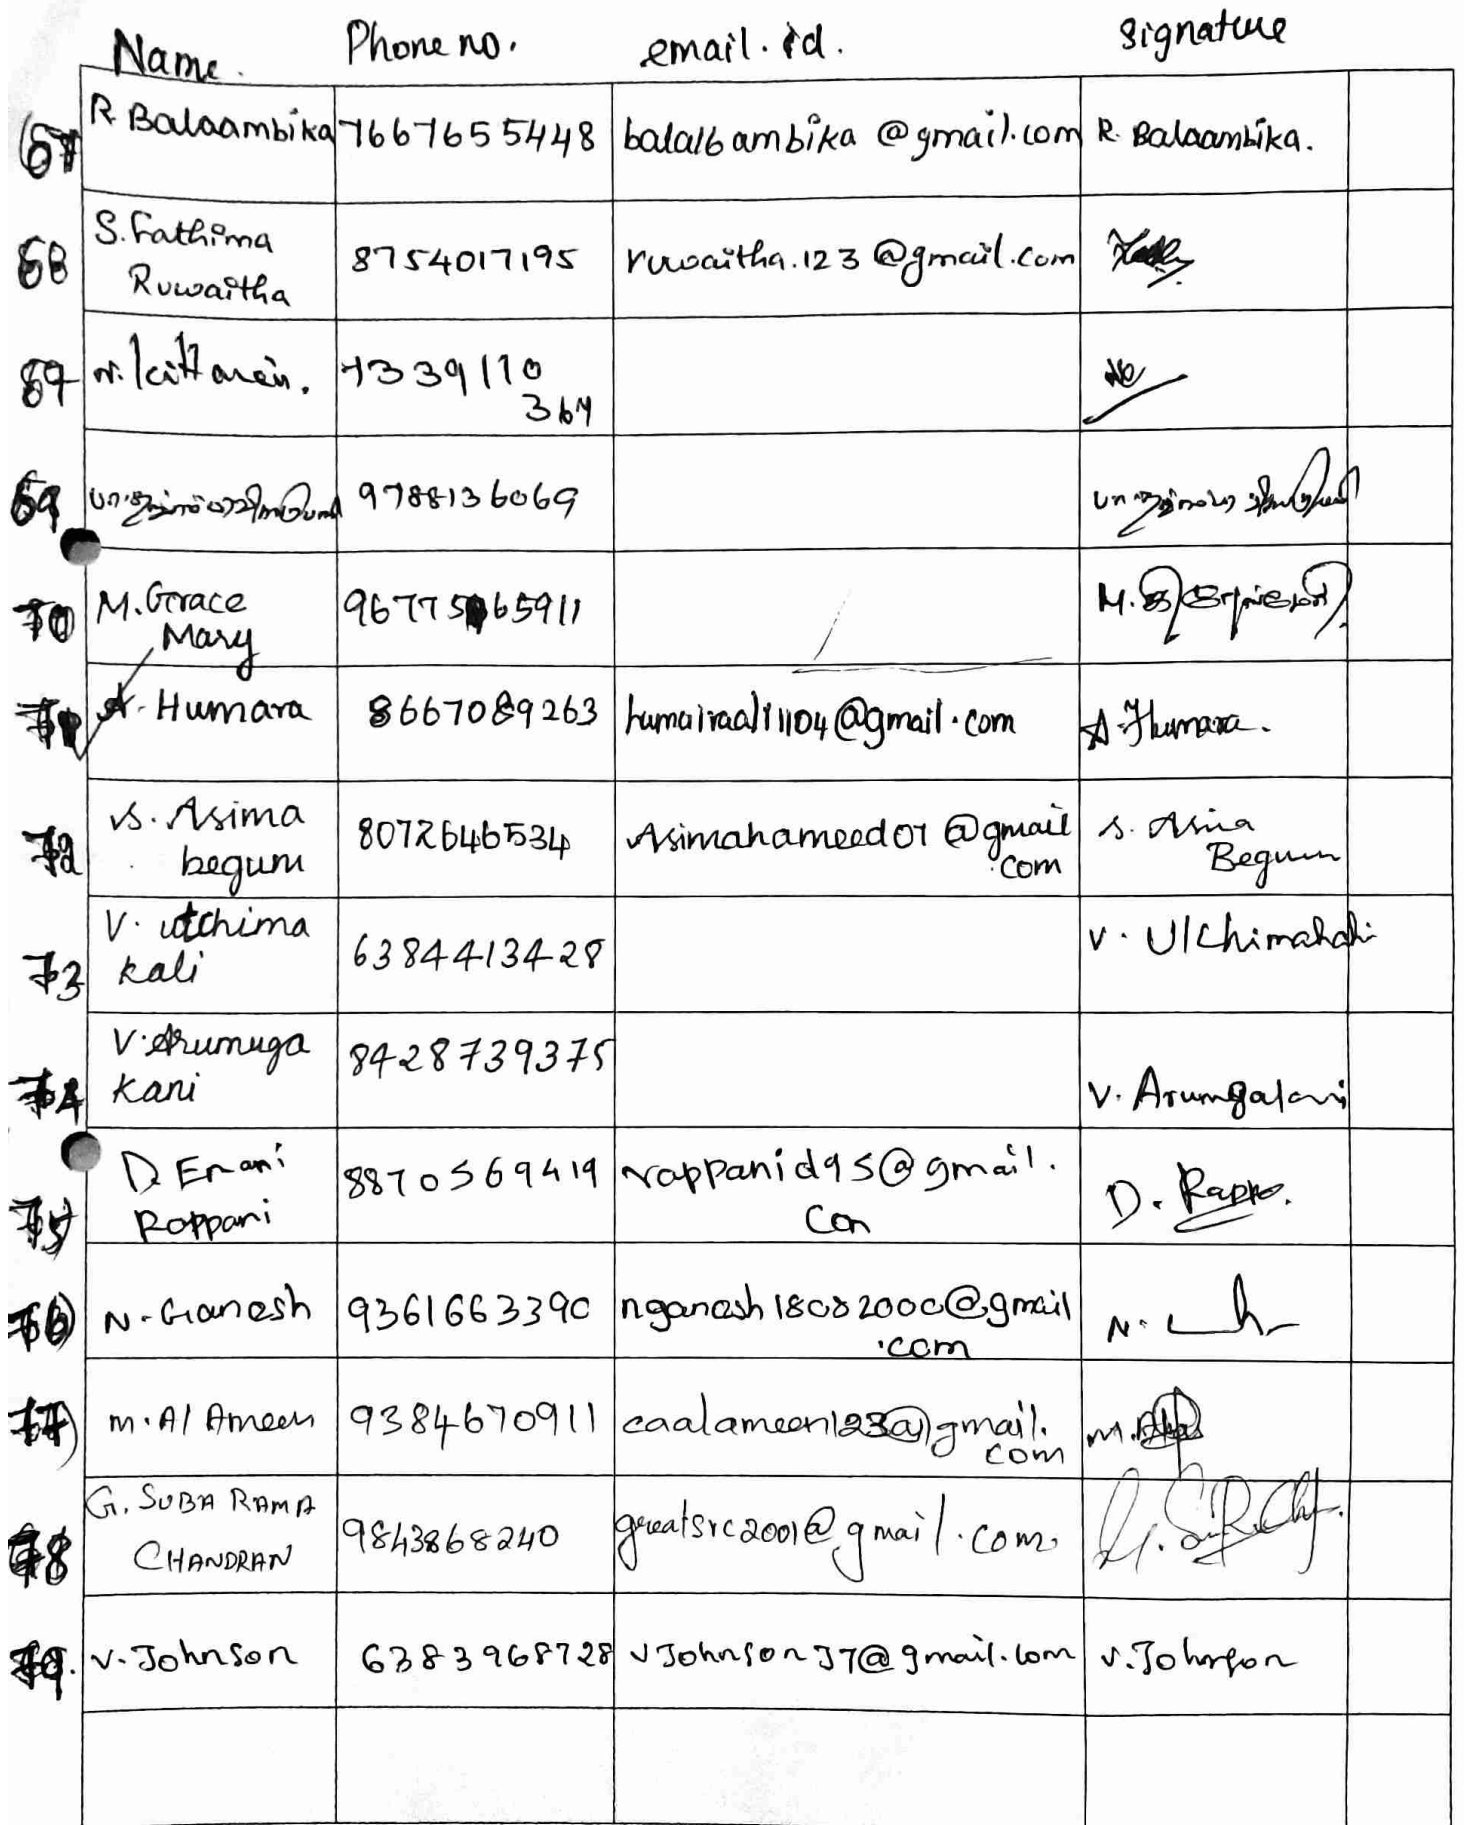 Name. Phone no. email.id. Signature
67 R Balaambika 7667655448 bala16ambika@gmail.com R. Balaambika.
68 S. Fathima
Ruwaitha 8754017195 ruwaitha.123@gmail.com
7339110
364
69 9788136069
70 M. Grace
Mary
71 A. Humara 8667089263 A. Humara.
72 S. Asima
begum 8072646534 Asimahameed07@gmail
.com S. Asma
Begum
73 V. utchima
kali 6384413428 V. Utchimahali
74 V. Arumuga
kani 8428739375 V. Arumgalani
75 D. Emani
Roppani 8870569419 rappanid95@gmail.
com D.
76) N. Ganesh 9361663390 nganesh18082000@gmail
.com N.
77) M. Al Ameen 9384670911 caalameen123@gmail.
com M.
78 G. SUBA RAMA
CHANDRAN 9843868240 greatsrc2001@gmail.com.
79. V. Johnson 6383968728 vJohnsonJ7@gmail.com V. Johnson